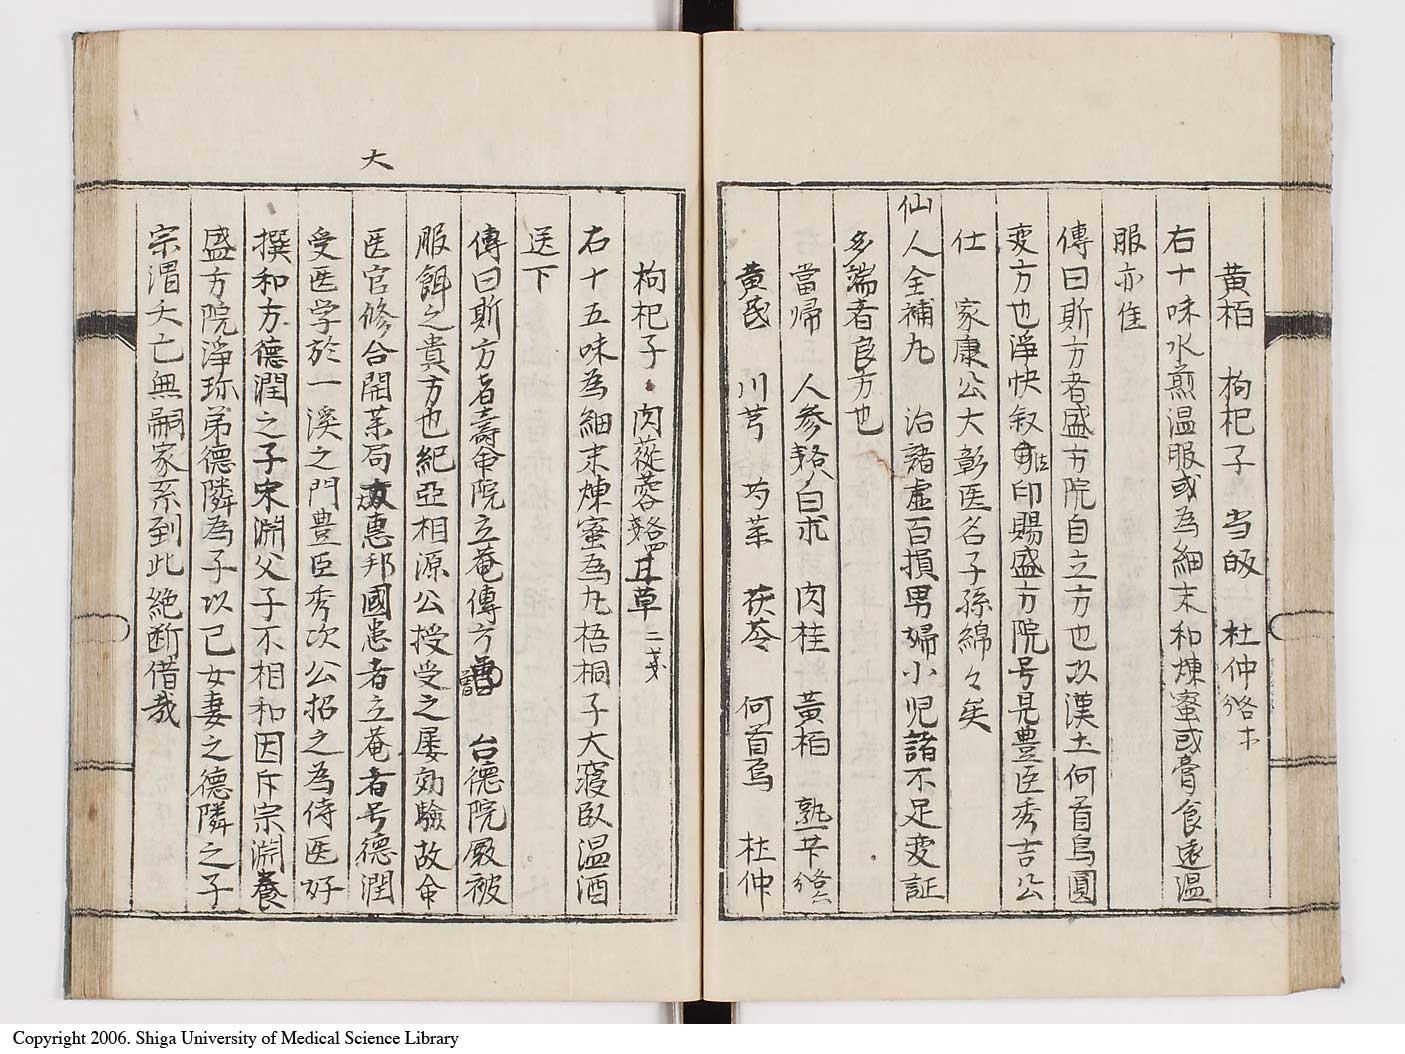 黄栢 枸杞子 当皈 一 杜仲
右十味水煎温服或為細末和煉蜜或膏食遠温
服亦佳
傳曰斯方者盛方院自立方也以漢土何首烏圓
变方也浄快叙法印賜盛方院号見豊臣秀吉公
仕 家康公大彰医名子孫綿々矣
仙人全補丸 治諸虚百損男婦小児諸不足变証
多端者良方也
當帰 三 人参 白朮 肉桂 黄栢 熟芐
黄芪 川芎 芍薬 茯苓 何首烏 杜仲
枸杞子 肉蓯蓉 各四 甘草 二戔
右十五味為細末煉蜜為丸梧桐子大寝臥温酒
送下
傳曰斯方者壽命院立菴傳方曽 台德院殿被
服餌之貴方也紀亞相源公授受之屡効驗故命
大
医官修合開薬局大惠邦國患者立菴者号德潤
受医学於一溪之門豊臣秀次公招之為侍医好
撰和方德潤之子宗渊父子不相和因斥宗渊養
盛方院淨珎弟德隣為子以己女妻之德隣之子
宗渭夭亡無嗣家系到此絶断借哉
Copyright 2006. Shiga University of Medical Science Library